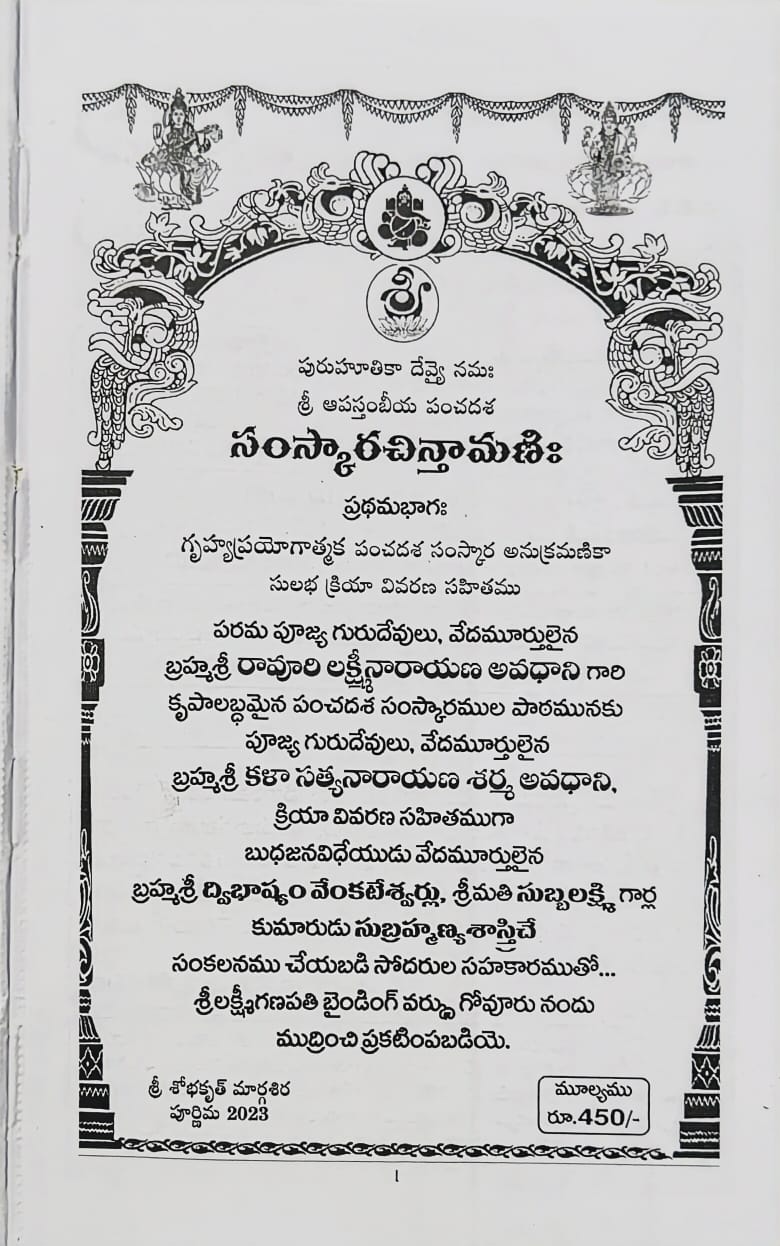 శ్రీ
పురుహూతికా దేవ్యై నమః
శ్రీ ఆపస్తంబీయ పంచదశ
సంస్కారచిన్తామణిః
ప్రథమభాగః
గృహ్యప్రయోగాత్మక పంచదశ సంస్కార అనుక్రమణికా
సులభ క్రియా వివరణ సహితము
పరమ పూజ్య గురుదేవులు, వేదమూర్తులైన
బ్రహ్మశ్రీ రావూరి లక్ష్మీనారాయణ అవధాని గారి
కృపాలబ్ధమైన పంచదశ సంస్కారముల పాఠమునకు
పూజ్య గురుదేవులు, వేదమూర్తులైన
బ్రహ్మశ్రీ కళా సత్యనారాయణ శర్మ అవధాని,
క్రియా వివరణ సహితముగా
బుధజనవిధేయుడు వేదమూర్తులైన
బ్రహ్మశ్రీ ద్విభాష్యం వేంకటేశ్వర్లు, శ్రీమతి సుబ్బలక్ష్మి గార్ల
కుమారుడు సుబ్రహ్మణ్యశాస్త్రిచే
సంకలనము చేయబడి సోదరుల సహకారముతో...
శ్రీలక్ష్మీగణపతి బైండింగ్ వర్క్సు గోవూరు నందు
ముద్రించి ప్రకటింపబడియె.
శ్రీ శోభకృత్ మార్గశిర
పూర్ణిమ 2023
మూల్యము
రూ.450/-
1